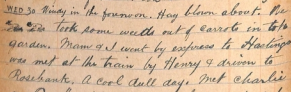 WED 30 Windy in the forenoon. Hay blown about. We
took some weeds out of carrots in top
garden. Mam & I went by express to Hastings
was met at the train by Henry & driven to
Rosebank. A cool dull day. Met Charlie